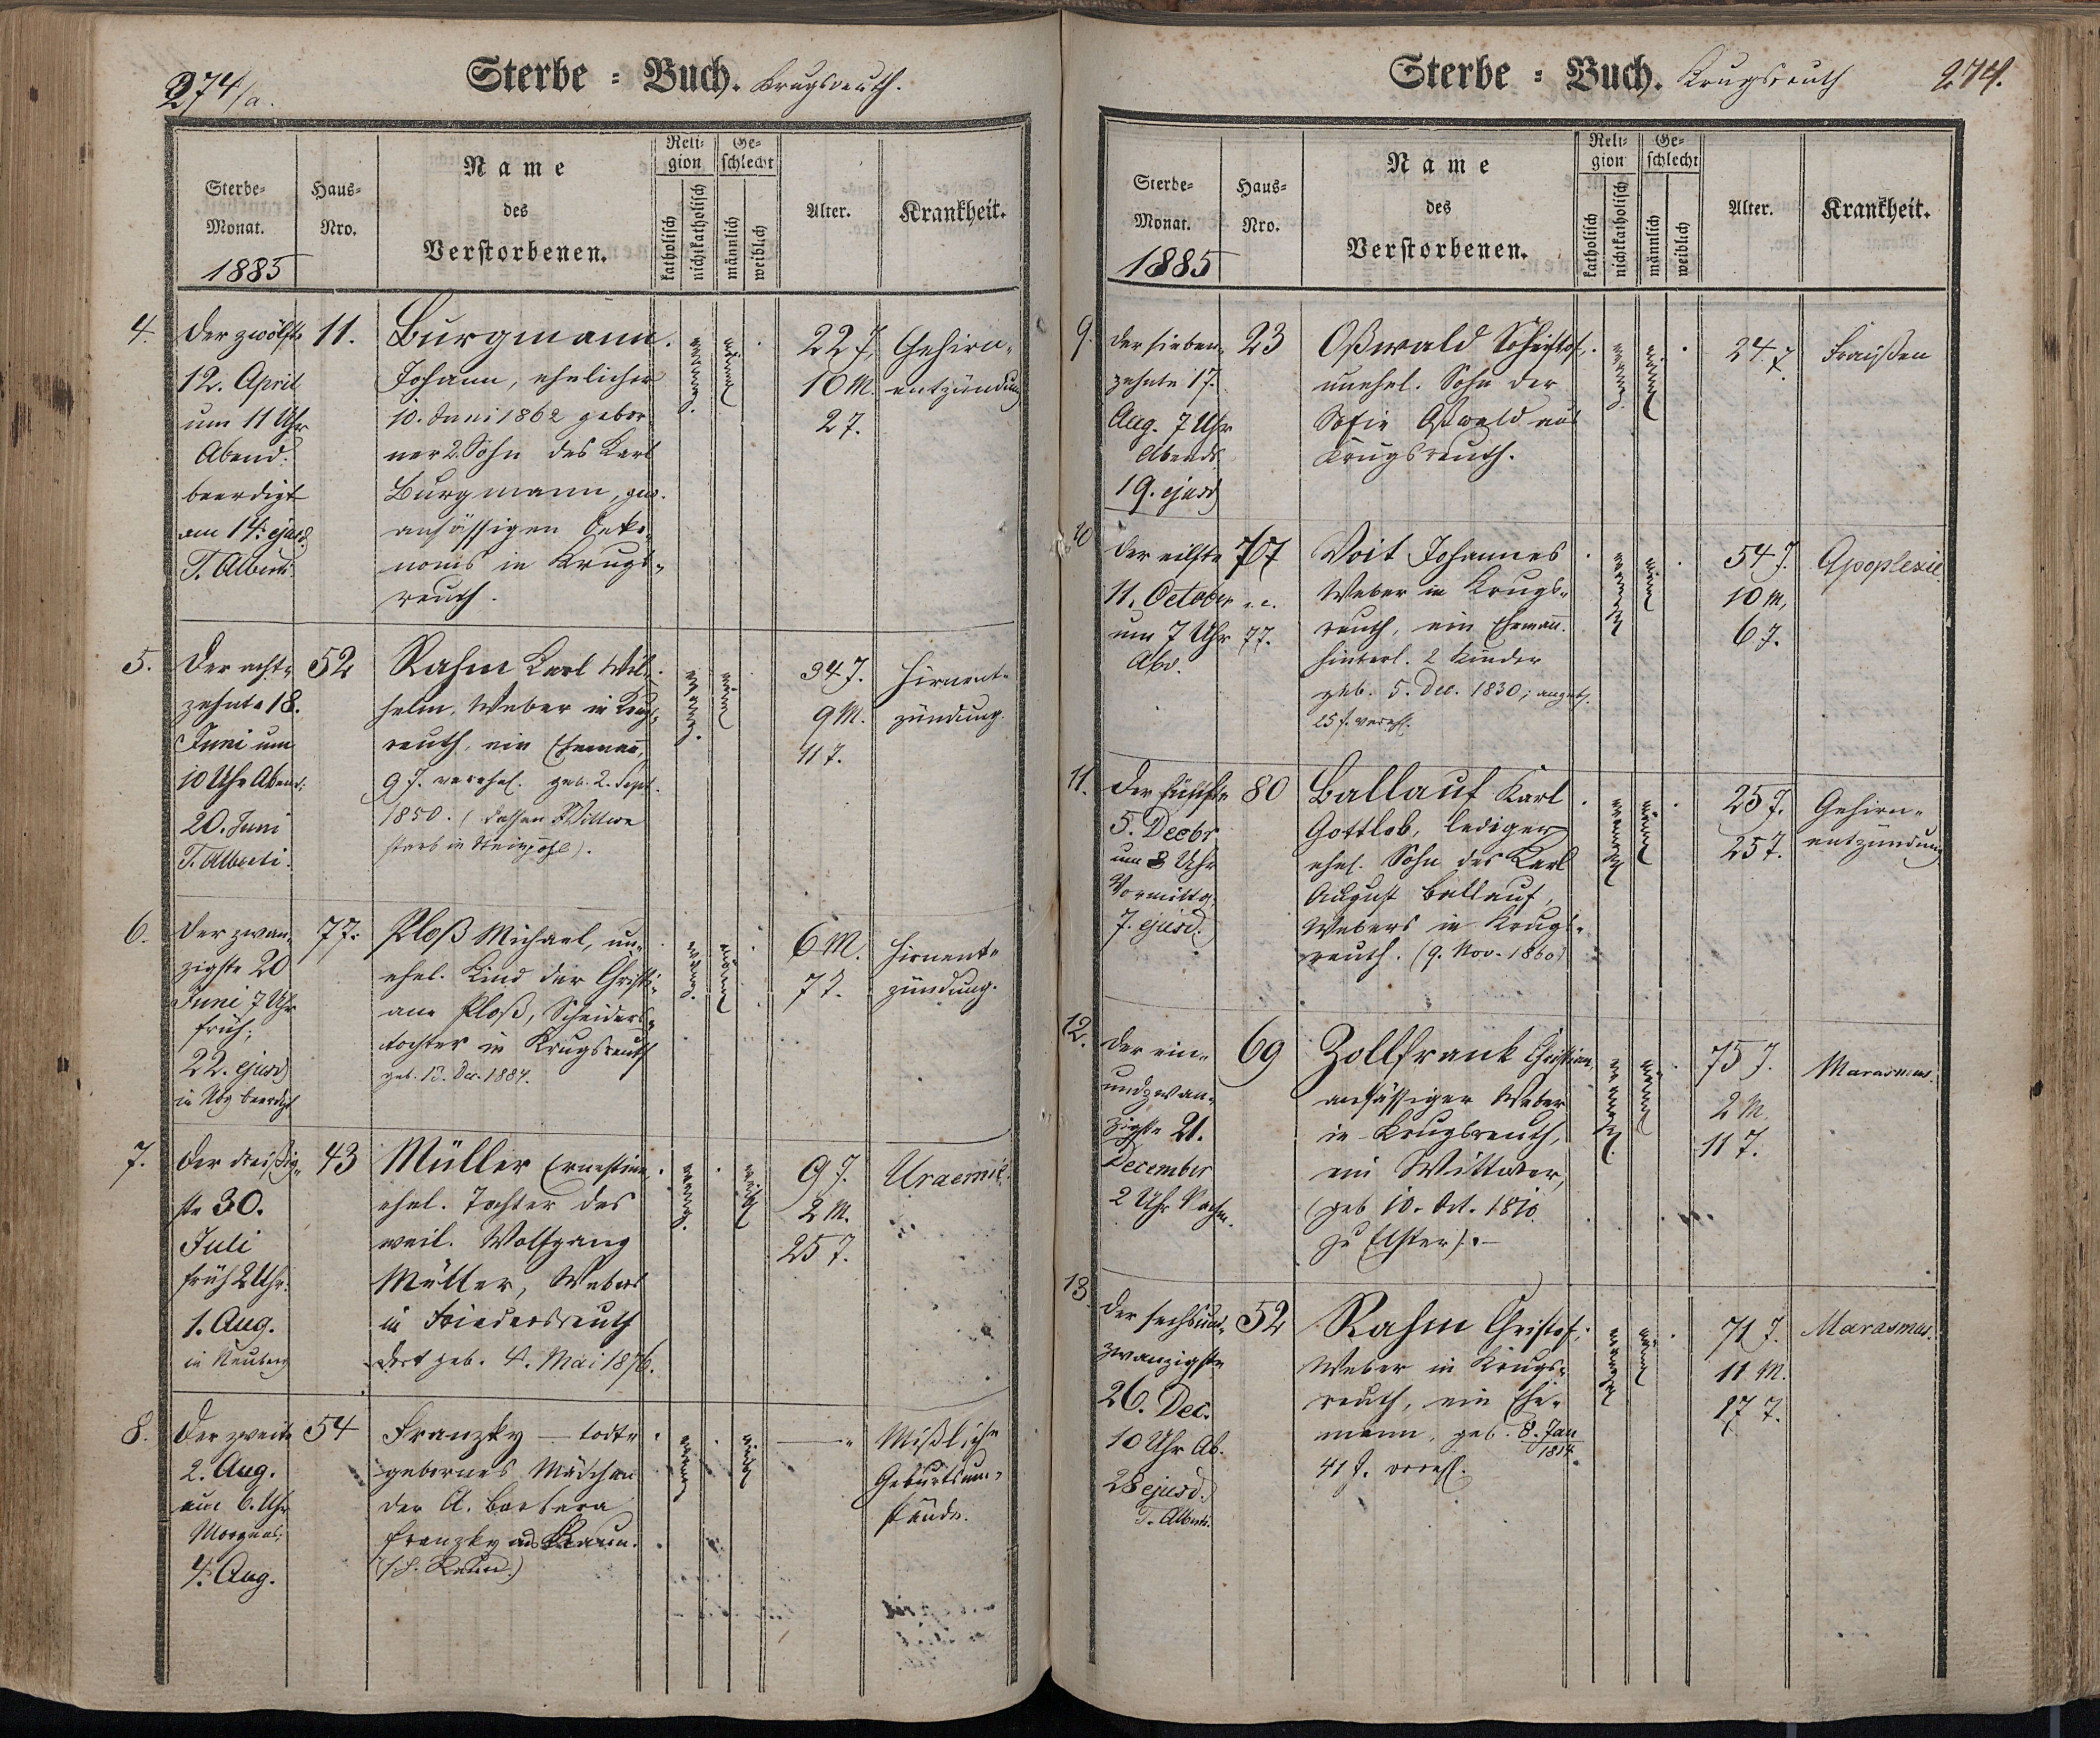 274/a.
Sterbe = Buch. Krugsreuth.
Sterbe-
Monat.
1885
Haus-
Nro.
Name
des
Verstorbenen.
Reli-
gion
katholisch
nichtkatholisch
Ge-
schlecht
männlich
weiblich
Alter.
Krankheit.
4.
Der zwölfte
12. April
um 11 Uhr
Abend.
beerdigt
am 14. ejusd.
T. Alberti
11.
Burgmann.
Johann, ehelicher
10. Juni 1862 gebor
ner 2. Sohn des Karl
Burgmann,
ansässigen Oeko-
noms in Krugs-
reuth.
22 J.
10 M.
2 T.
Gehirn-
entzündung
5.
Der acht-
zehnte 18.
Juni um
10 Uhr Abend.
20. Juni
T. Alberti.
52
Rahm Karl Wil-
helm, Weber in Krugs-
reuth, ein Ehemann,
9 J. verehel. geb. 2. Sept.
1850. (dessen Wittwe
starb in Steinpöhl).
34 J.
9 M.
11 T.
Hirnent-
zündung.
6.
Der zwan-
zigste 20
Juni 7 Uhr
früh;
22. ejusd
in Nbg beerdigt
77.
Ploß Michael, un-
ehel. Kind der Christi-
ane Ploß,
tochter in Krugsreuth
geb. 13. Dec. 1884.
6 M.
7 T.
Hirnent-
zündung.
7.
Der dreißig-
ste 30.
Juli
früh 2 Uhr.
1. Aug.
in Neuberg
43
Müller Ernestine,
ehel. Tochter des
weil. Wolfgang
Müller, Webers
in Friedersreuth
dort geb. 4. Mai 1876.
9 J.
2 M.
25 T.
Uraemie.
8.
Der zweite
2. Aug.
um 6. Uhr
Morgens;
4. Aug.
54
Franzky — todt-
gebornes Mädchen
der A. Barbara
Franzky aus
—
Mißliche
Geburtsum-
stände.
Sterbe = Buch. Krugsreuth
274.
Sterbe-
Monat.
1885
Haus-
Nro.
Name
des
Verstorbenen.
Reli-
gion
katholisch
nichtkatholisch
Ge-
schlecht
männlich
weiblich
Alter.
Krankheit.
9.
Der sieben-
zehnte 17.
Aug. 7 Uhr
Abends
19. ejusd
23
Oßwald Christof,
unehel. Sohn der
Sofie Oßwald aus
Krugsreuth.
24. T.
Fraißen
10
Der eilfte
11. October
um 7 Uhr
Abd.
77
77.
Voit Johannes
Weber in Krugs-
reuth, ein Ehemann.
hinterl. 2 Kinder
geb. 5. Dec. 1830;
25 J. verehl.
54 J.
10 M,
6 T.
Apoplexie
11.
Der fünfte
5. Decbr
um 8 Uhr
Vormittg.
7. ejusd.
80
Ballauf Karl
Gottlob, lediger
ehel. Sohn des Karl
August Ballauf,
Webers in Krugs-
reuth. (9. Nov. 1860)
25 J.
25 T.
Gehirn-
entzündung
12.
Der ein-
undzwan-
zigste 21.
December
2 Uhr Nachm.
69
Zollfrank Christian,
ansässiger Weber
in Krugsreuth,
ein Wittwer,
(geb 10. Oct. 1810
zu Elster). —
75 J.
2 M.
11 T.
Marasmus.
13.
Der sechsund-
zwanzigste
26. Dec.
10 Uhr Ab.
28 ejusd.
T. Alberti.
52
Rahm Christof,
Weber in Krugs-
reuth, ein Ehe-
mann, geb. 8. Jan
1814.
41 J. verehl.
71 J.
11 M.
17 T.
Marasmus.